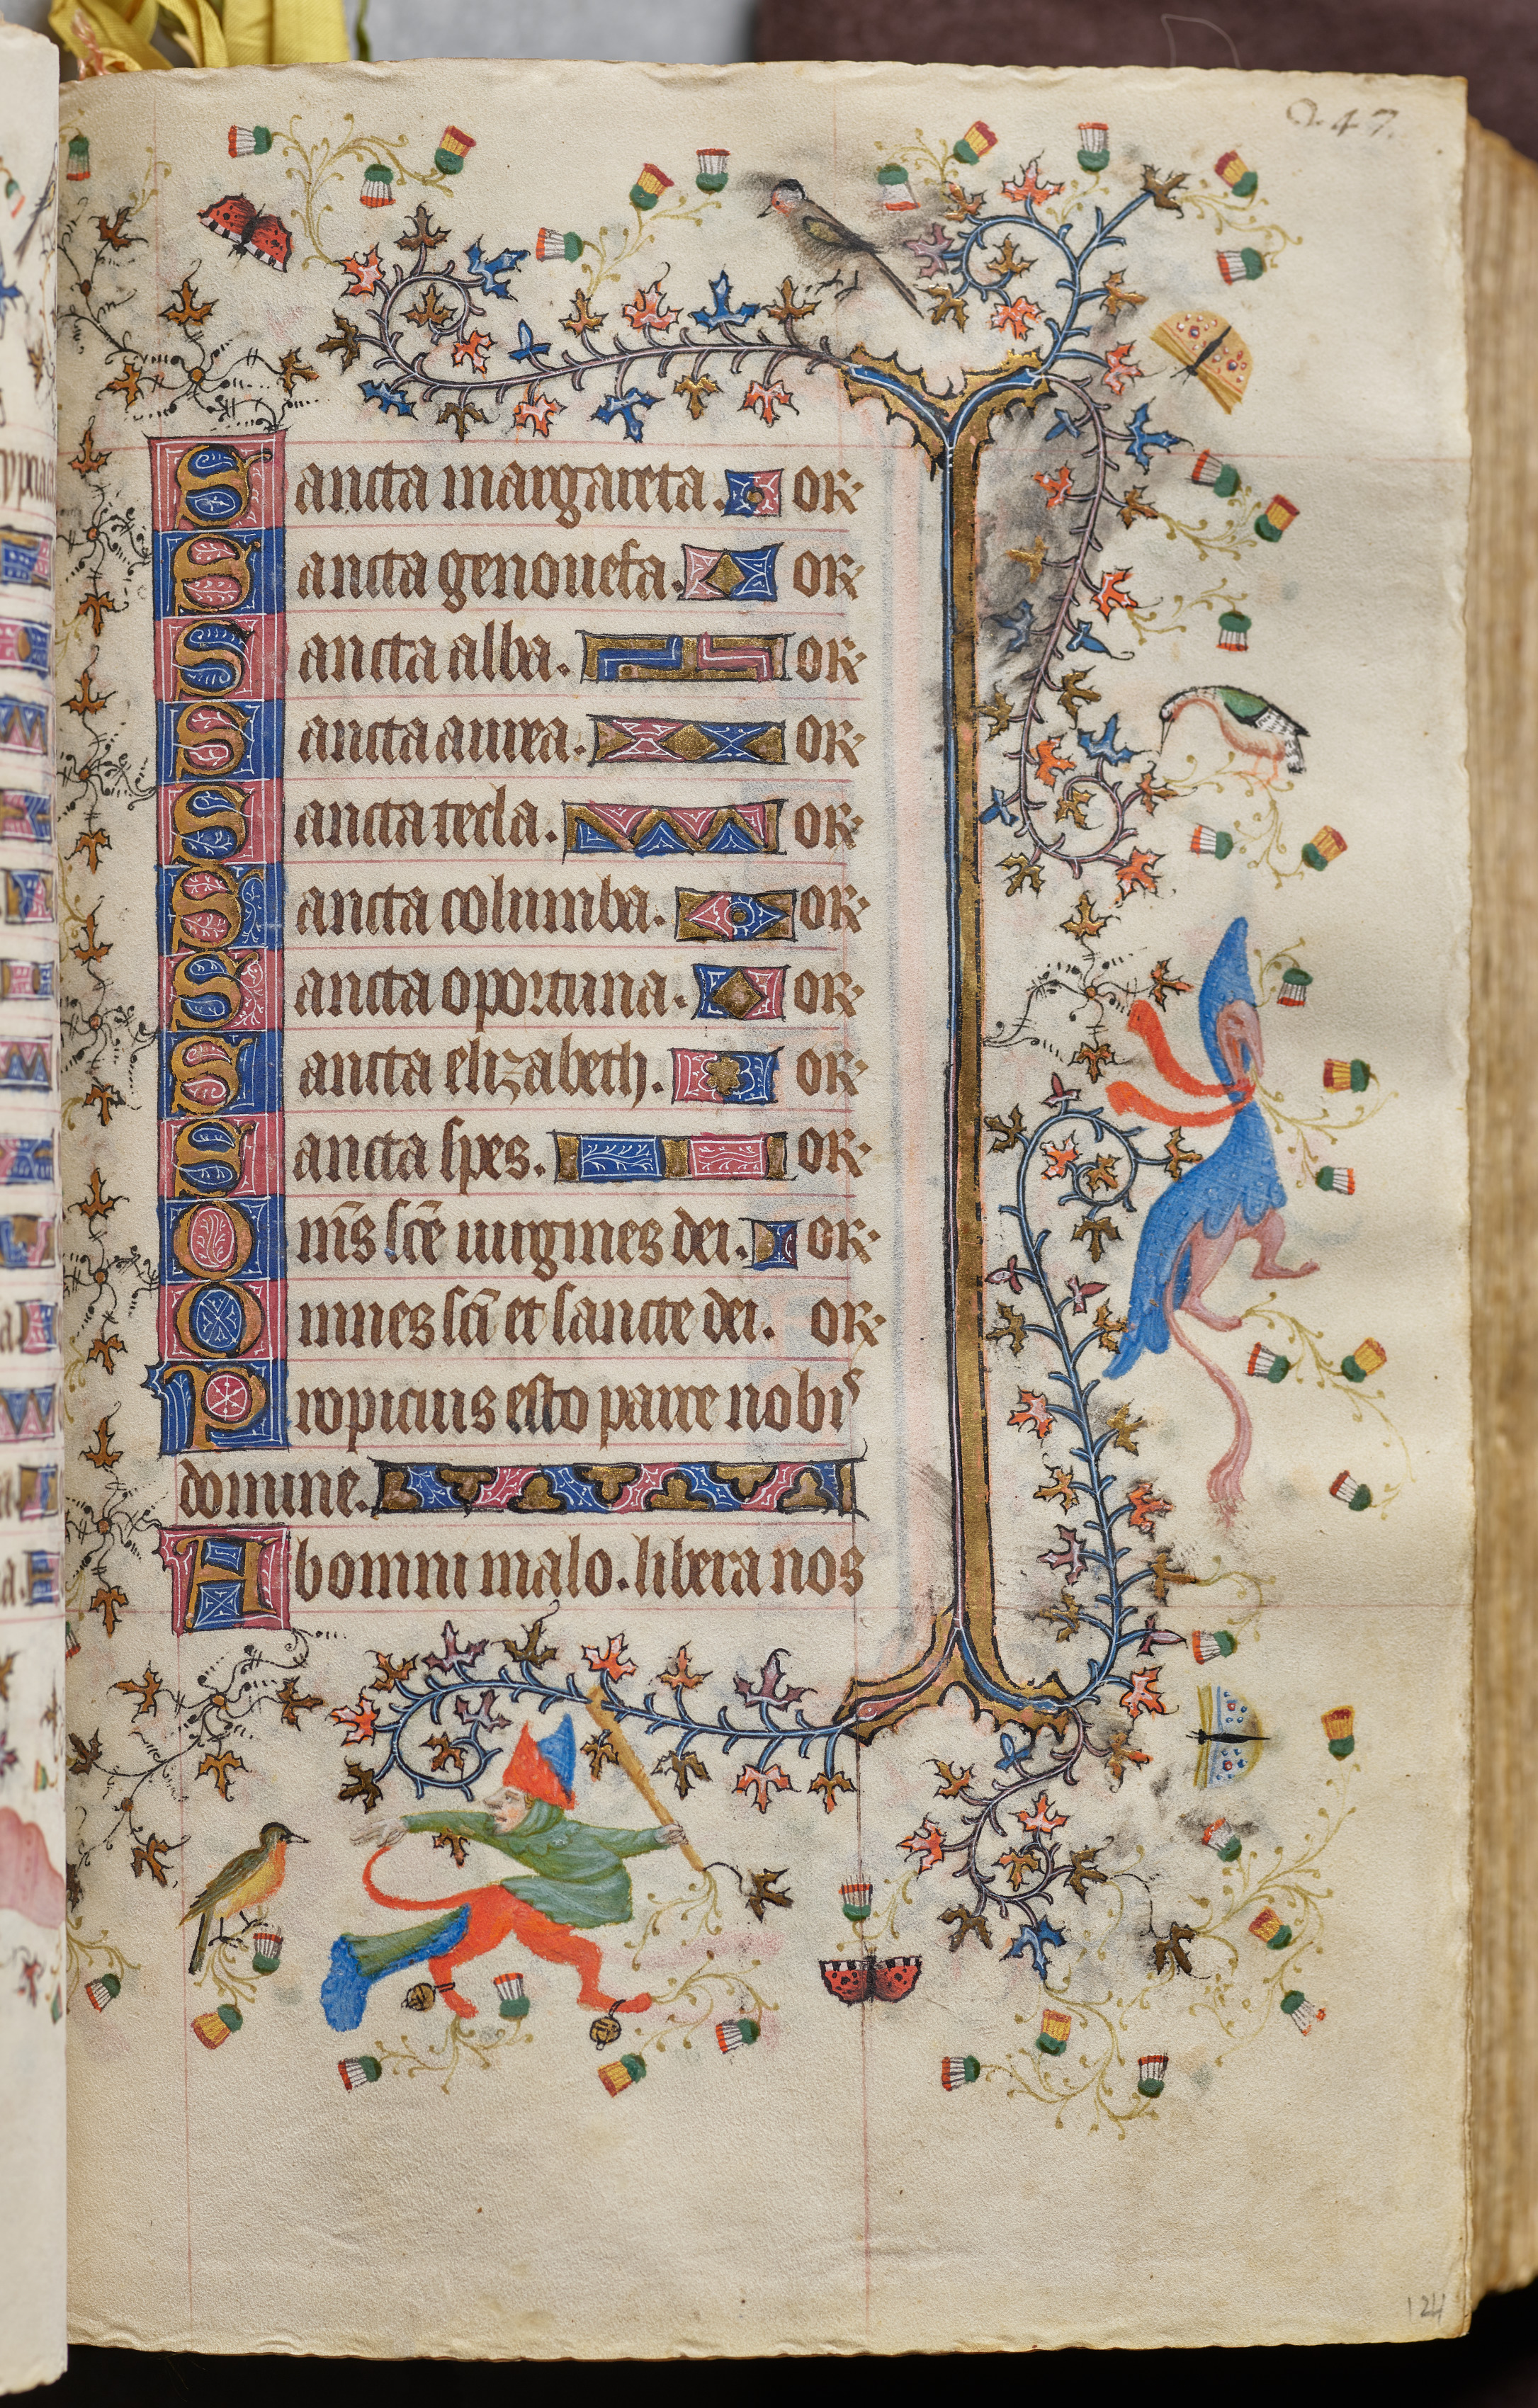 247.
Sancta margareta. or
Sancta genouefa. or
Sancta alba. or
Sancta aurea. or
Sancta tecla. or
Sancta columba. or
Sancta oportuna. or
Sancta elizabeth. or
Sancta spes. or
Om̄s sc̄e uirgines dei. or
Omnes sc̄i et sancte dei. or
Propicius esto parce nobis
domine.
Ab omni malo. libera nos
124